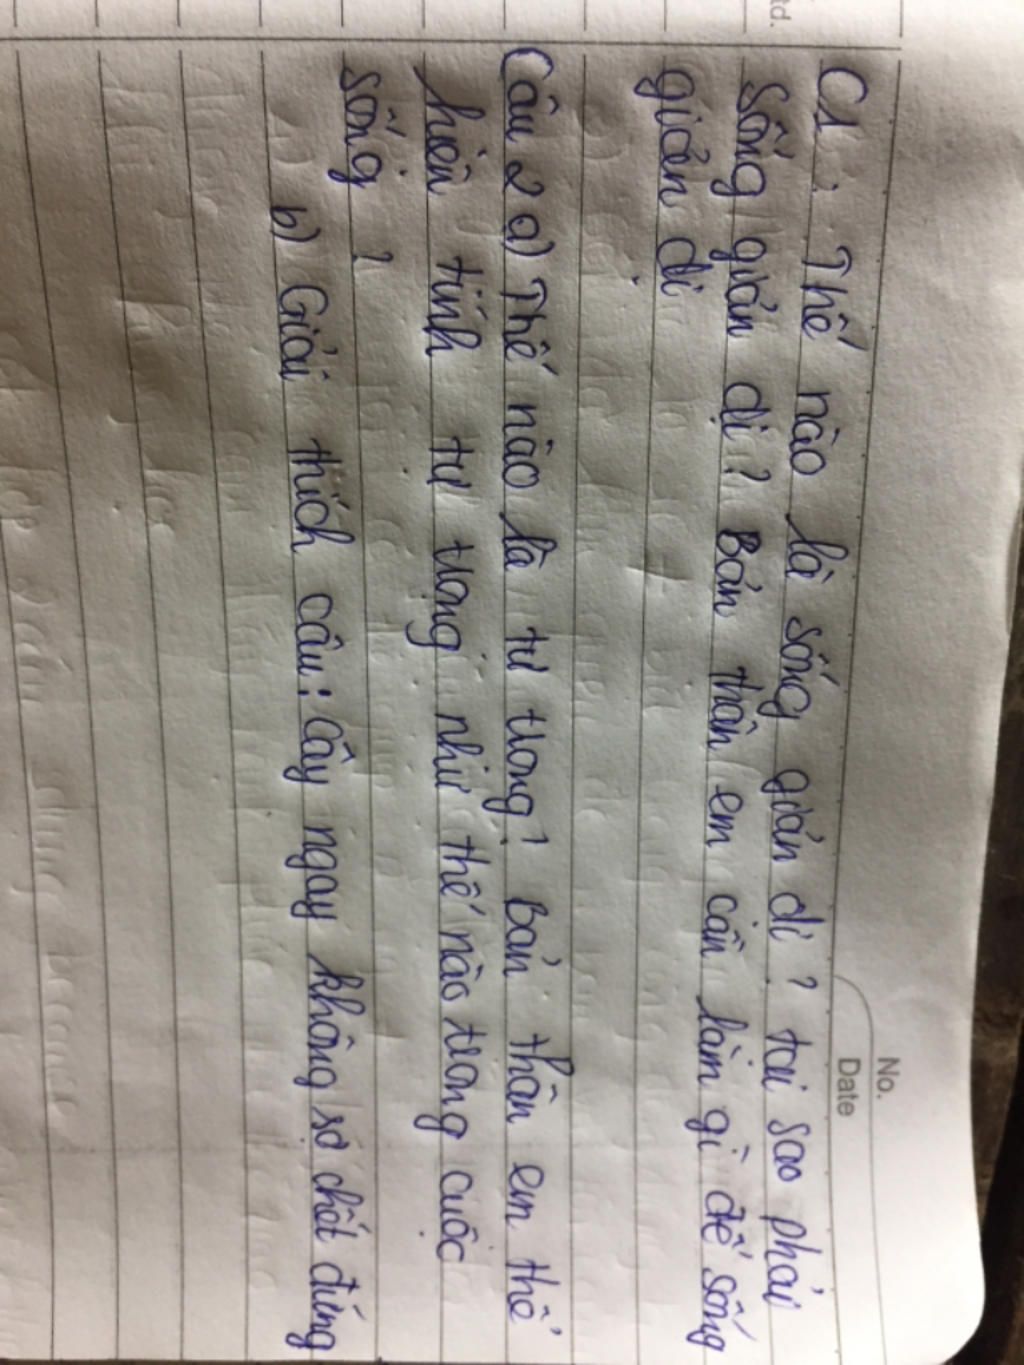 No.
Date
C1: Thế nào là sống giản dị? tại sao phải
sống giản dị? Bản thân em cần làm gì để sống
giản dị
Câu 2 a) Thế nào là tự trọng? Bản thân em thể
hiện tính tự trọng như thế nào trong cuộc
sống?
b) Giải thích câu: Cây ngay không sợ chết đứng